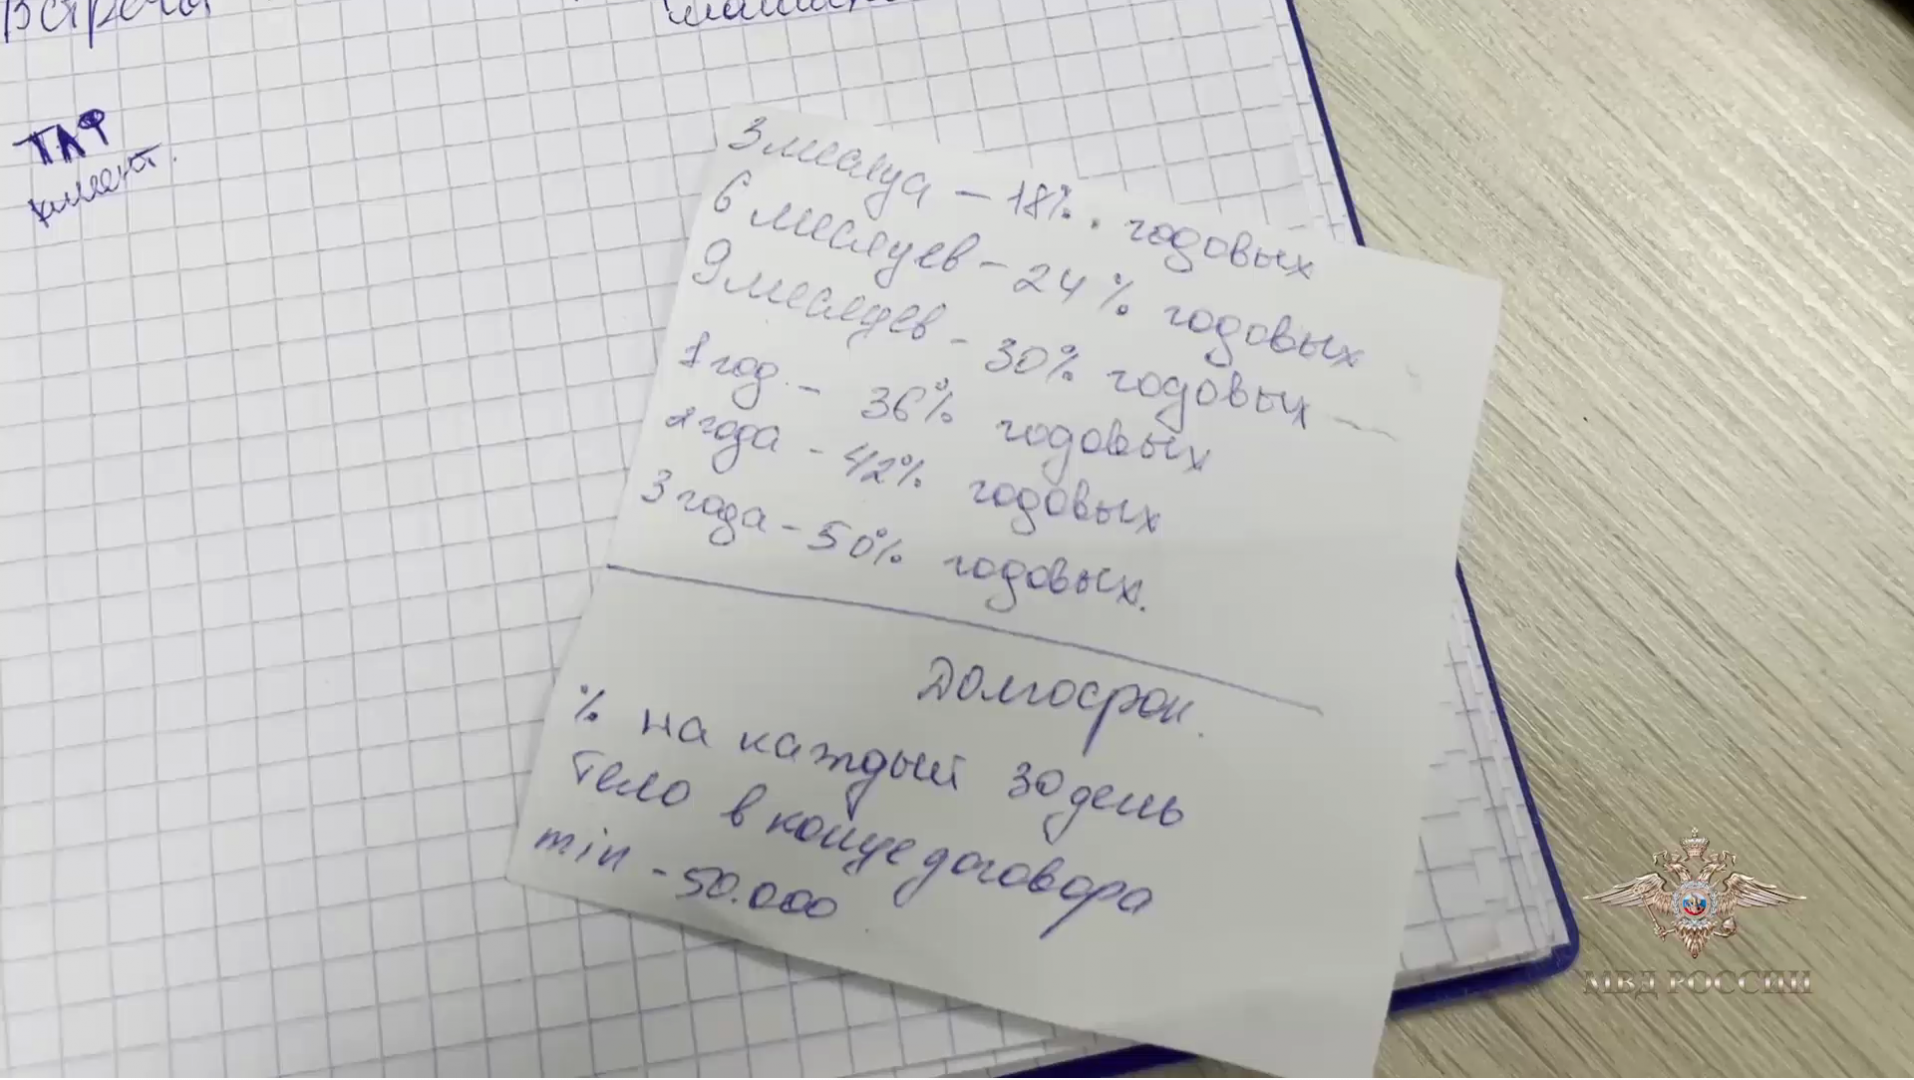 Встреча
ТЛФ
клиент.
3 месяца - 18% годовых
6 месяцев - 24% годовых
9 месяцев - 30% годовых
1 год. - 36% годовых
2 года - 42% годовых
3 года - 50% годовых.
Долгосрок.
% на каждый 30 день
Тело в конце договора
min - 50.000
МВД РОССИИ